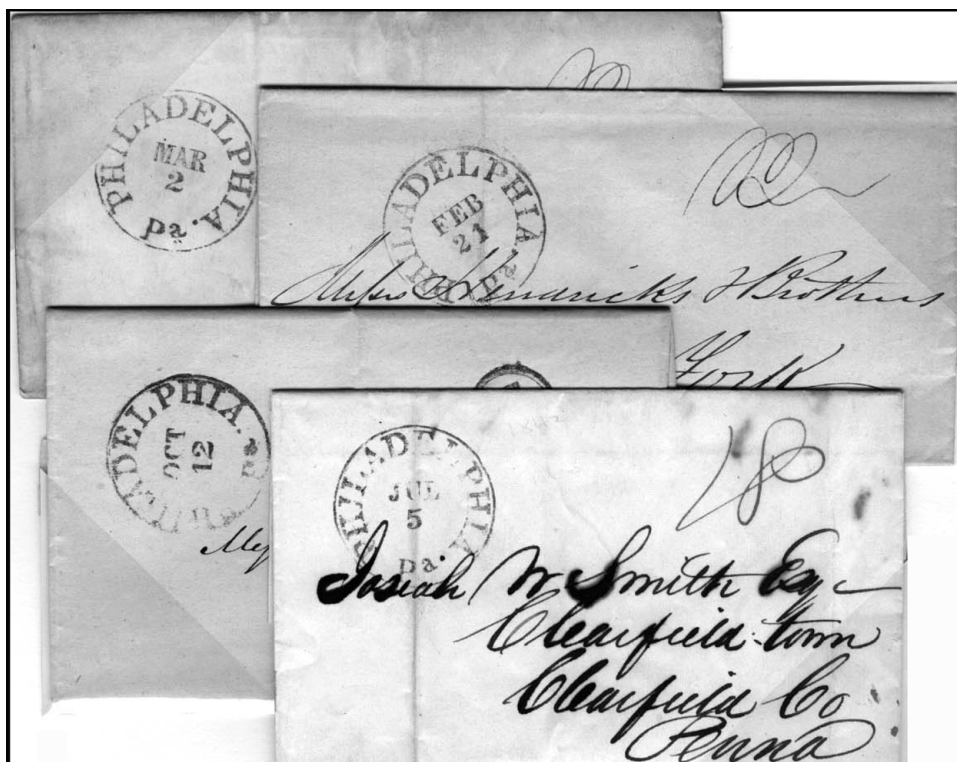 PHILADELPHIA.
MAR
2
Pa.
PHILADELPHIA.
FEB
21
Pa
Hendricks & Brothers
York
PHILADELPHIA.
OCT
12
Pa
Mes
PHILADELPHIA
JUL
5
Pa.
18
Josiah W Smith Esq
Clearfield town
Clearfield Co
Penna